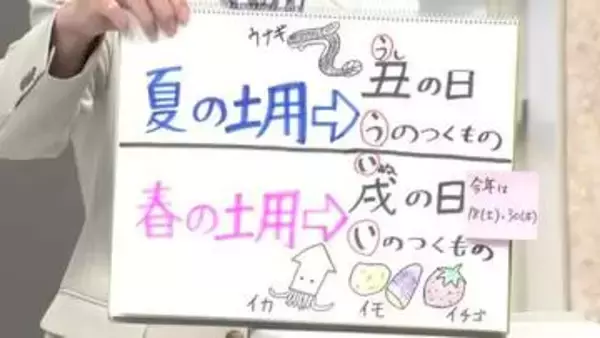 ウナギ
うし
夏の土用⇨丑の日
うのつくもの
いぬ
春の土用⇨戌の日
いのつくもの
今年は
18(土)・30(木)
イカ
イモ
イチゴ